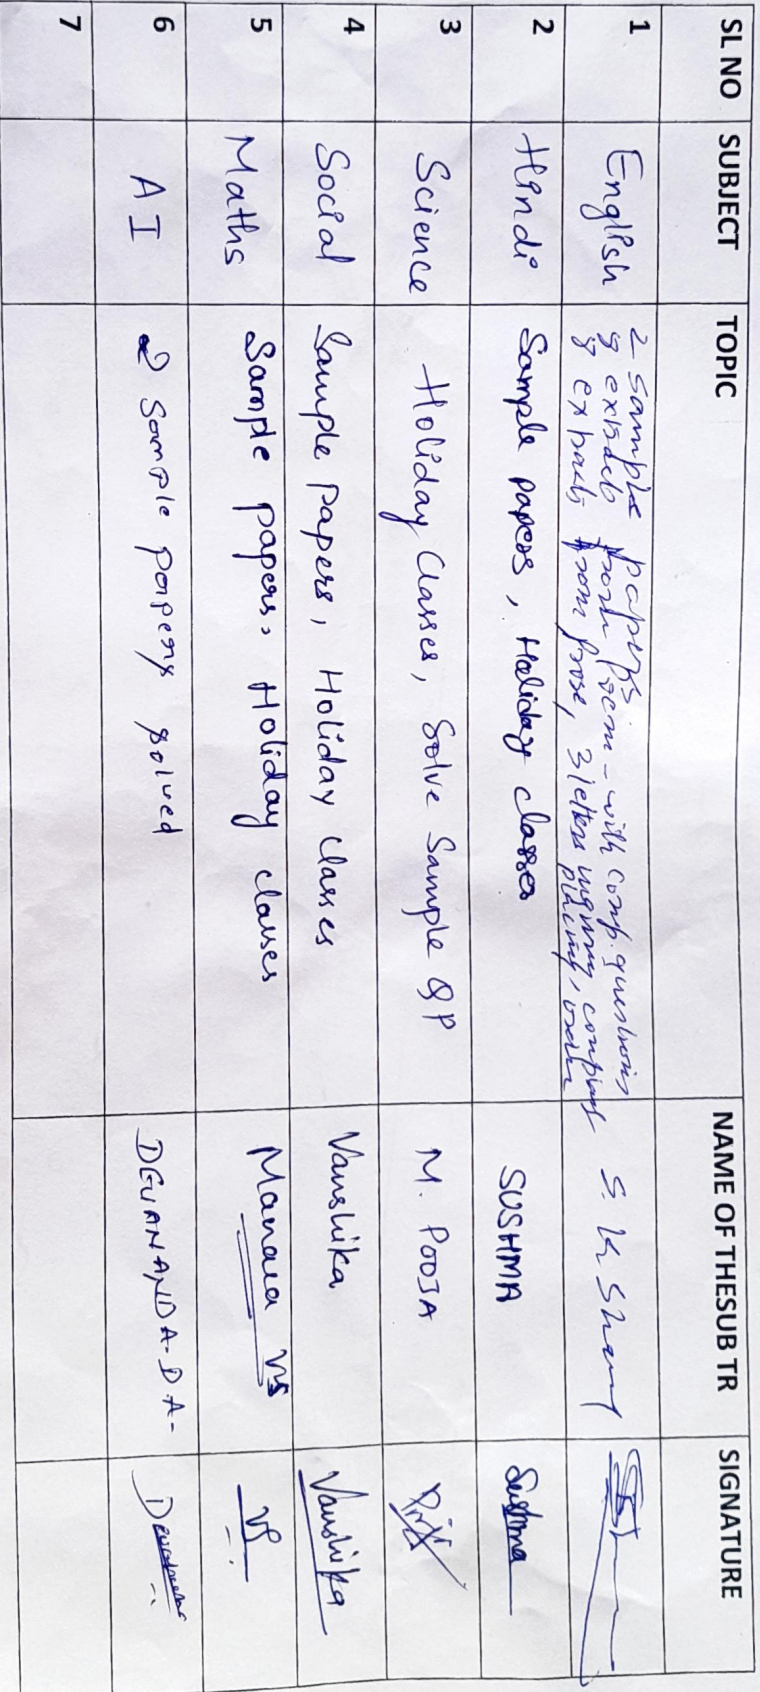 SL NO SUBJECT TOPIC NAME OF THESUB TR SIGNATURE
1 English 2 Sample papers S. K Sharma
9 extracts from poem - with comp. questions
9 extracts from prose, 3 letters
2 Hindi Sample papers, Holiday classes SUSHMA Sushma
3 Science Holiday Classes, Solve Sample QP M. POOJA
4 Social Sample Papers, Holiday Classes Vanshika Vanshika
5 Maths Sample papers, Holiday classes VS VS
6 AI 2 Sample papers solved DEVANANDA-DA-
7